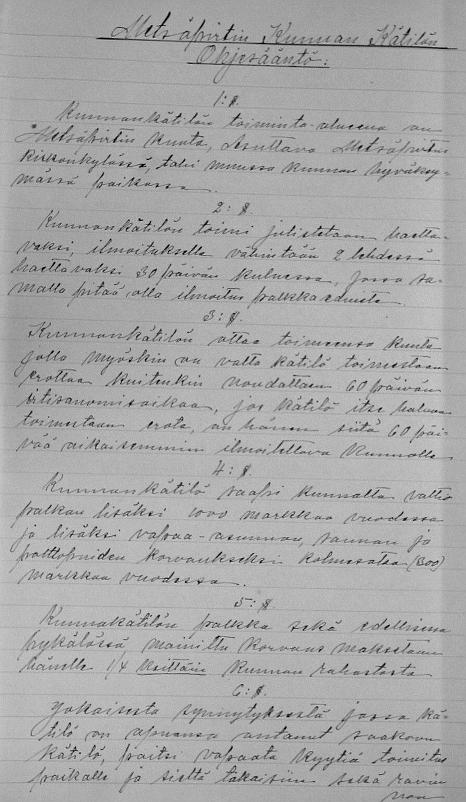 Metsäpirtin Kunnan Kätilön
Ohjesääntö:
1: §.
Kunnankätilön toiminta-alueena on
Metsäpirtin kunta, Asuttava Metsäpirtin
kirkonkylässä, tahi muussa kunnan hyväksy-
mässä paikassa.
2: §.
Kunnankätilön toimi julistetaan haetta-
vaksi, ilmoituksella vähintään 2 lehdessä
haettavaksi 30 päivän kuluessa, jossa sa-
malla pitää olla ilmoitus palkkaeduista.
3: §.
Kunnankätilön ottaa toimeensa kunta
jolla myöskin on valta kätilö toimestaan
erottaa kuitenkin noudattaen 60 päivän
irtisanomisaikaa, jos kätilö itse haluaa
toimestaan erota, on hänen siitä 60 päi-
vää aikaisemmin ilmoitettava kunnalle
4: §.
Kunnankätilö saapi kunnalta valtio
palkan lisäksi 1000 markkaa vuodessa
ja lisäksi vapaa-asunnon, saunan ja
polttopuiden korvaukseksi kolmesataa (300)
markkaa vuodessa.
5: §.
Kunnakätilön palkka sekä edellisessä
pykälässä, mainittu korvaus maksetaan
hänelle 1/4 Kunnan rahastosta
6: §.
Jokaisesta synnytyksestä jossa kä-
tilö on apuansa antanut saakoon
kätilö, paitsi vapaata kyytiä toimitus
paikalle ja sieltä takaisin sekä ravin
non